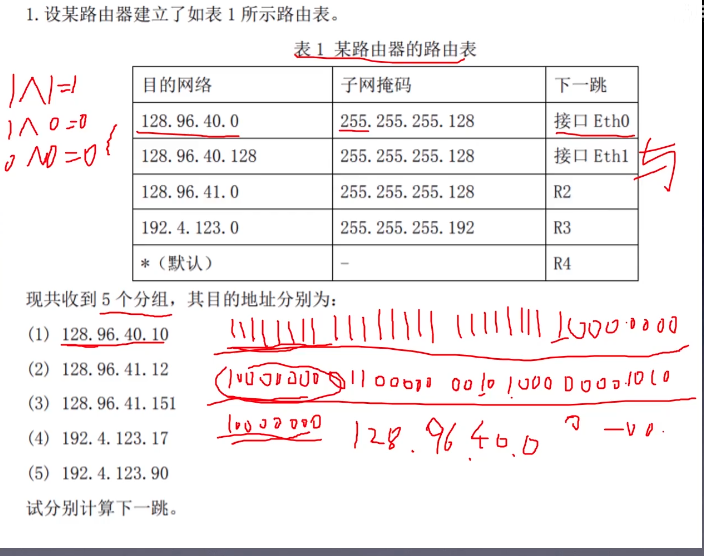 1. 设某路由器建立了如表 1 所示路由表。
表 1 某路由器的路由表
目的网络 子网掩码 下一跳
1∧1=1
128.96.40.0 255.255.255.128 接口 Eth0
1∧0=0
128.96.40.128 255.255.255.128 接口 Eth1
0∧0=0
128.96.41.0 255.255.255.128 R2
192.4.123.0 255.255.255.192 R3
*（默认） - R4
现共收到 5 个分组，其目的地址分别为：
(1) 128.96.40.10
11111111 11111111 11111111 10000000
(2) 128.96.41.12
(3) 128.96.41.151
10000000
128.96.40.0
(4) 192.4.123.17
(5) 192.4.123.90
试分别计算下一跳。